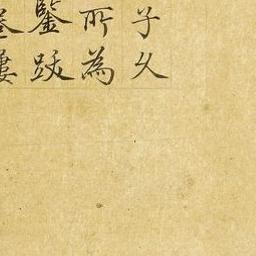 子久
所為
鑒跋